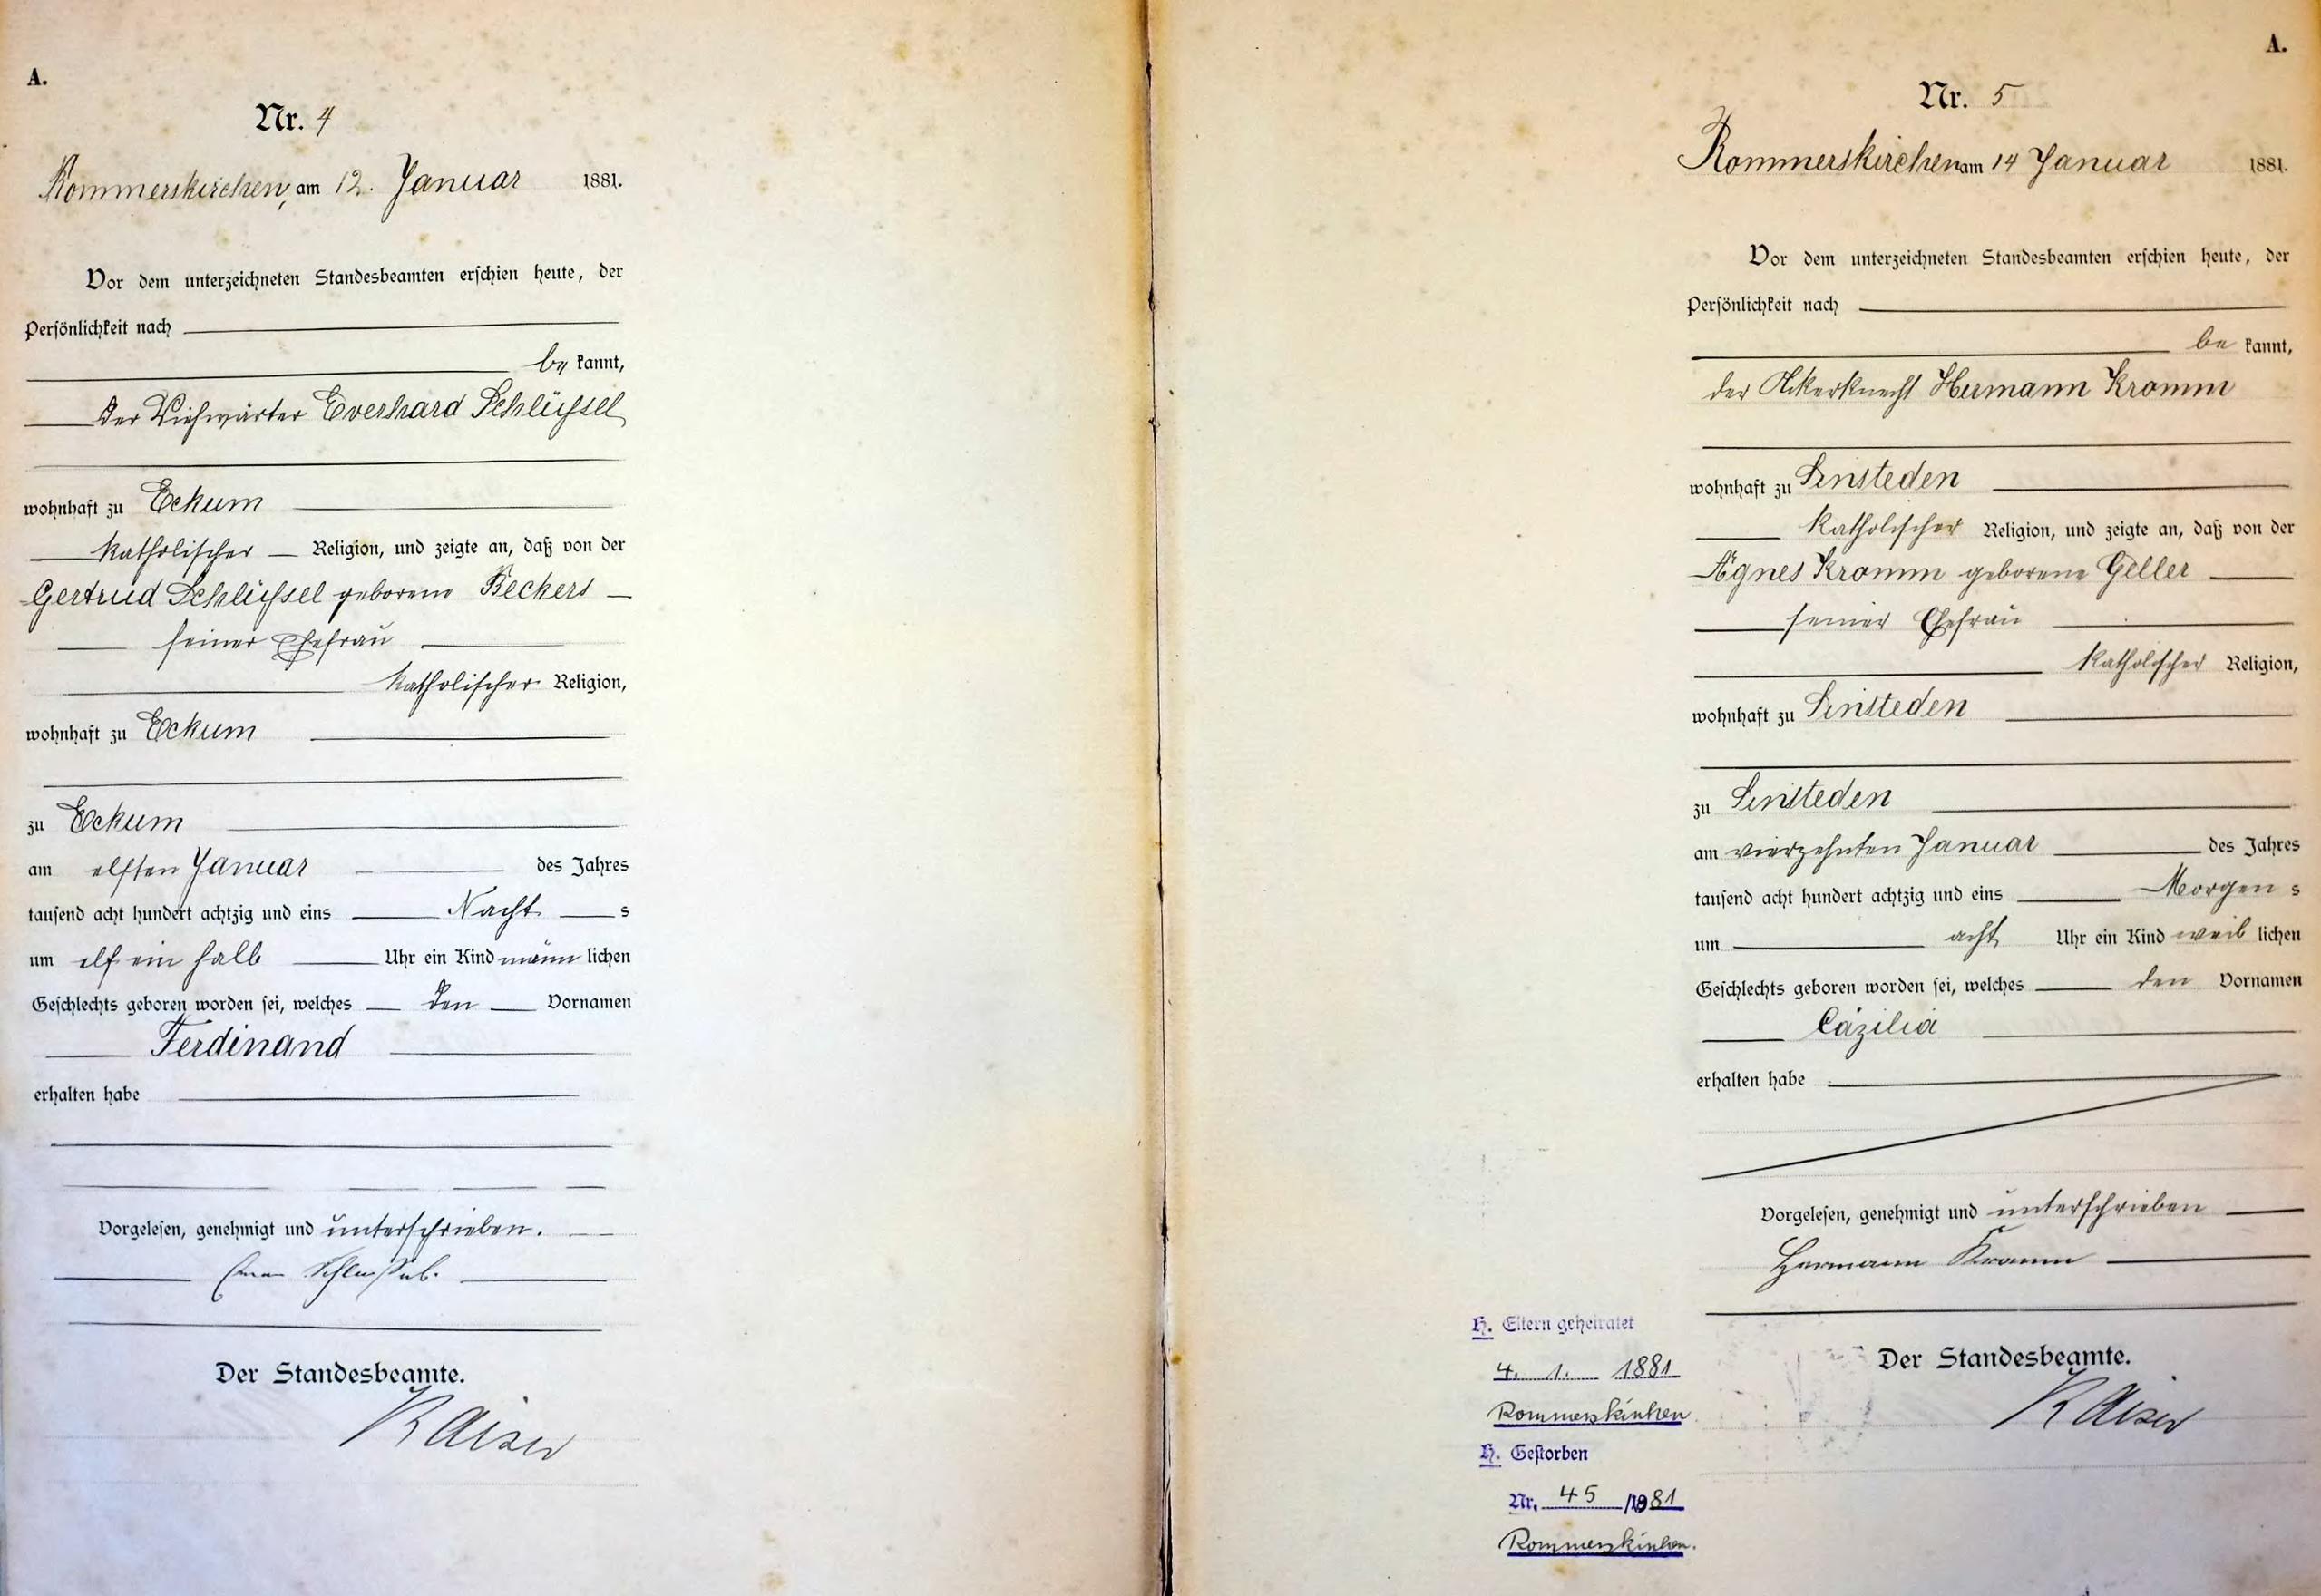 A.
Nr. 4
Rommerskirchen, am 12. Januar 1881.
Vor dem unterzeichneten Standesbeamten erschien heute, der
Persönlichkeit nach
be kannt,
der Viehwärter Everhard Schlüssel
wohnhaft zu Eckum
katholischer Religion, und zeigte an, daß von der
Gertrud Schlüssel geborene Beckers
seiner Ehefrau
katholischer Religion,
wohnhaft zu Eckum
zu Eckum
am elften Januar des Jahres
tausend acht hundert achtzig und eins Nacht s
um elf ein halb Uhr ein Kind männ lichen
Geschlechts geboren worden sei, welches den Vornamen
Ferdinand
erhalten habe
Vorgelesen, genehmigt und unterschrieben.
Schlüssel.
Der Standesbeamte.
Kaiser
A.
Nr. 5
Rommerskirchen am 14 Januar 1881.
Vor dem unterzeichneten Standesbeamten erschien heute, der
Persönlichkeit nach
be kannt,
der Ackerknecht Hermann Kromm
wohnhaft zu Sinsteden
katholischer Religion, und zeigte an, daß von der
Agnes Kromm geborene Geller
seiner Ehefrau
katholischer Religion,
wohnhaft zu Sinsteden
zu Sinsteden
am vierzehnten Januar des Jahres
tausend acht hundert achtzig und eins Morgen s
um acht Uhr ein Kind weib lichen
Geschlechts geboren worden sei, welches den Vornamen
Cäzilia
erhalten habe
Vorgelesen, genehmigt und unterschrieben
Hermann Kromm
Der Standesbeamte.
Kaiser
H. Eltern geheiratet
4. 1. 1881
Rommerskirchen
H. Gestorben
Nr. 45 /1881
Rommerskirchen.